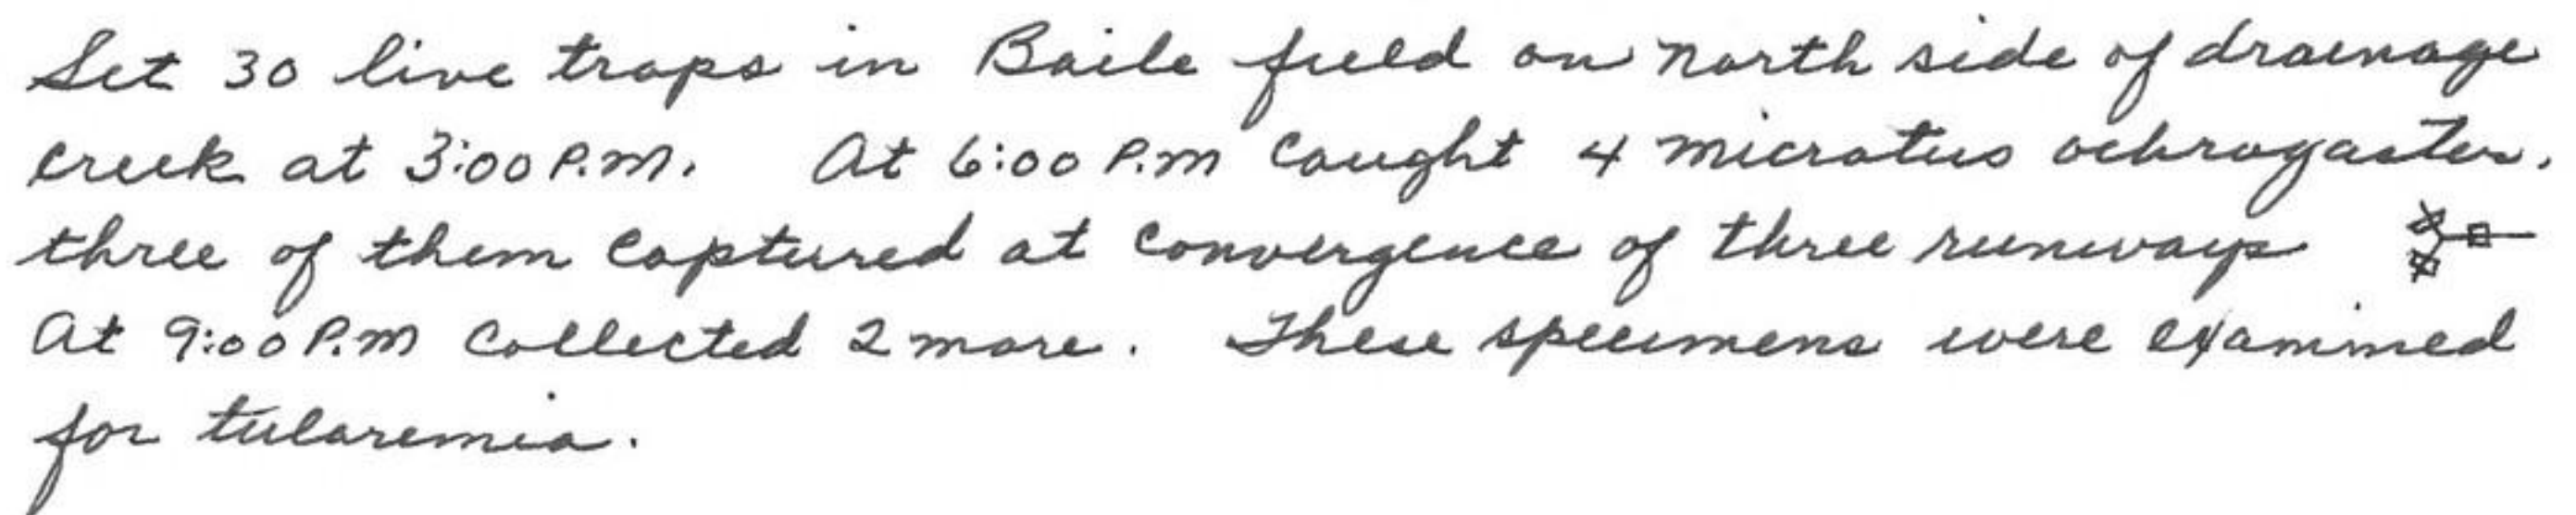 Set 30 live traps in Baile field on north side of drainage
creek at 3:00 P.M. At 6:00 P.M caught 4 microtus ochrogaster.
three of them captured at convergence of three runways
At 9:00 P.M collected 2 more. These specimens were examined
for tularemia.